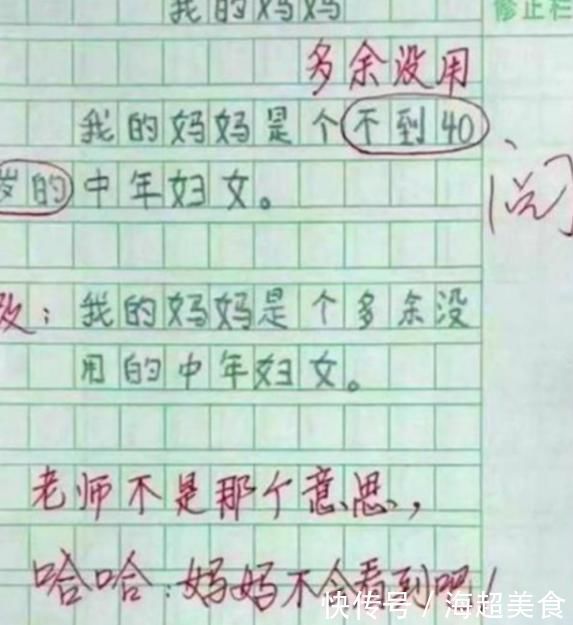 我的妈妈
修正栏
多余没用
我的妈妈是个不到40
岁的中年妇女。
阅
改：我的妈妈是个多余没
用的中年妇女。
老师不是那个意思，
哈哈，妈妈不会看到吧！
快传号/海超美食